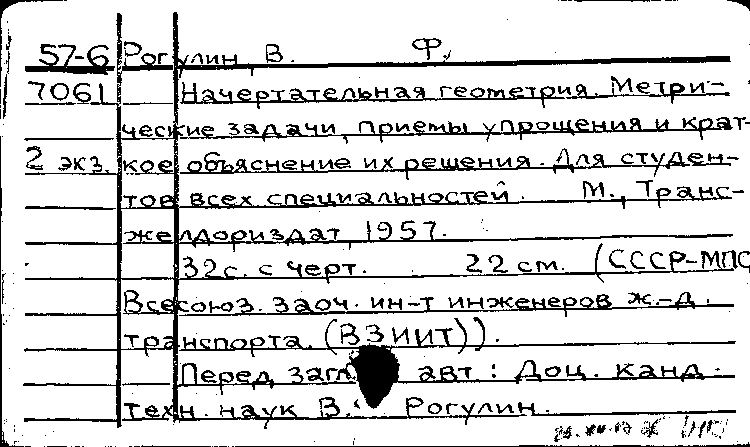 57-6 Рогулин, В. Ф.
7061 Начертательная геометрия. Метри-
ческие задачи, приемы упрощения и крат-
2 экз. кое объяснение их решения. Для студен-
тов всех специальностей. М., Транс-
желдориздат, 1957.
32 с. с черт. 22 см. (СССР-МПС
Всесоюз. заоч. ин-т инженеров ж.-д.
транспорта. (ВЗИИТ)).
Перед загл. авт.: Доц. канд.
техн. наук В. Рогулин.